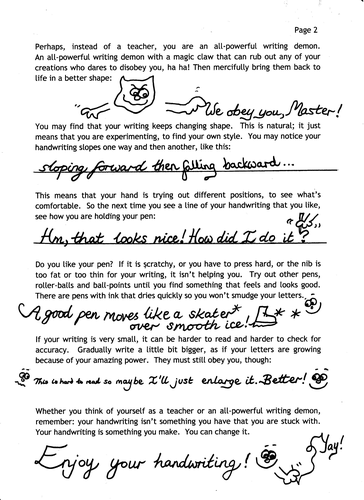 Page 2
Perhaps, instead of a teacher, you are an all-powerful writing demon.
An all-powerful writing demon with a magic claw that can rub out any of your
creations who dares to disobey you, ha ha! Then mercifully bring them back to
life in a better shape:
We obey you, Master!
You may find that your writing keeps changing shape. This is natural; it just
means that you are experimenting, to find your own style. You may notice your
handwriting slopes one way and then another, like this:
sloping forward then falling backward...
This means that your hand is trying out different positions, to see what's
comfortable. So the next time you see a line of your handwriting that you like,
see how you are holding your pen:
Hm, that looks nice! How did I do it?
Do you like your pen? If it is scratchy, or you have to press hard, or the nib is
too fat or too thin for your writing, it isn't helping you. Try out other pens,
roller-balls and ball-points until you find something that feels and looks good.
There are pens with ink that dries quickly so you won't smudge your letters.
A good pen moves like a skater
over smooth ice!
If your writing is very small, it can be harder to read and harder to check for
accuracy. Gradually write a little bit bigger, as if your letters are growing
because of your amazing power. They must still obey you, though:
This is hard to read so maybe I'll just enlarge it. Better!
Whether you think of yourself as a teacher or an all-powerful writing demon,
remember: your handwriting isn't something you have that you are stuck with.
Your handwriting is something you make. You can change it.
Yay!
Enjoy your handwriting!